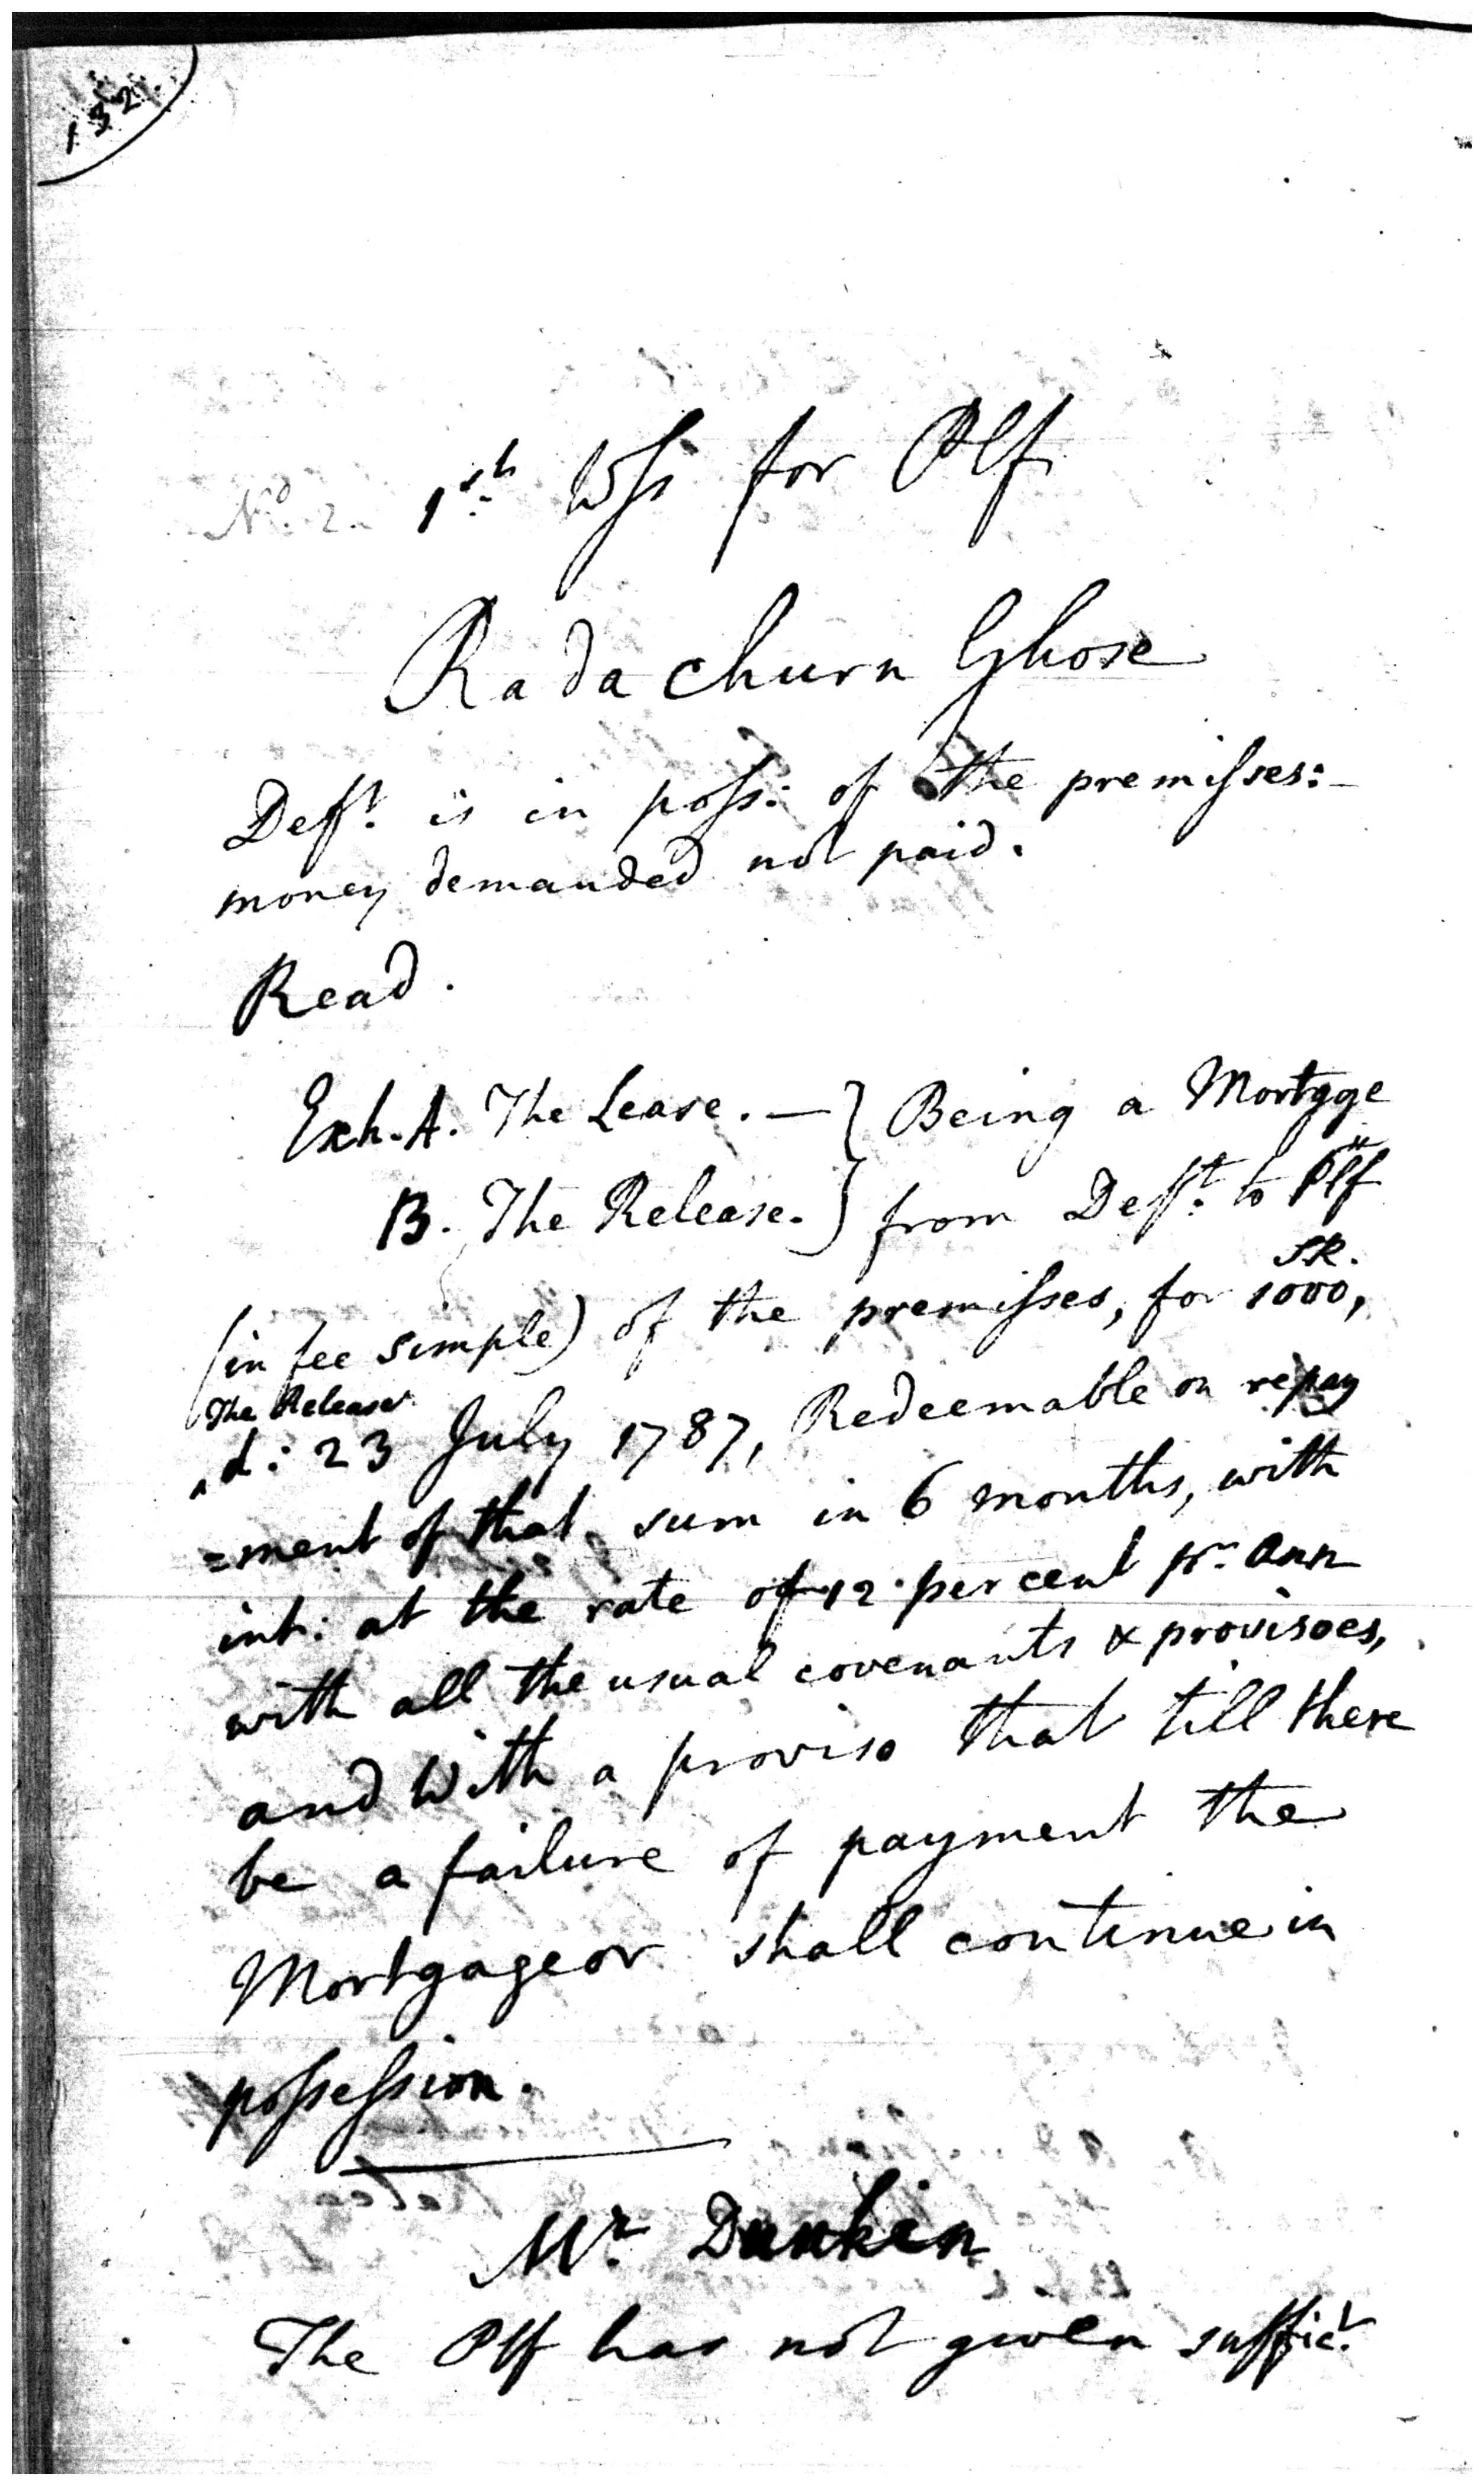 132
No. 2.
1st. Wss for Plf
Radachurn Ghose
Deft. is in poss: of the premisses:-
money demanded not paid.
Read.
Exh. A. The Lease. — } Being a Mortgge
B. The Release. } from Deft. to Plf
SR.
(in fee simple) of the premisses, for 1000,
The Release
^d: 23 July 1787, Redeemable on repay
=ment of that sum in 6 months, with
int: at the rate of 12 per cent pr. Ann
with all the usual covenants & provisoes,
and with a proviso that till there
be a failure of payment the
Mortgageor shall continue in
possession.
Mr. Dunkin
The Plf has not given suffict.